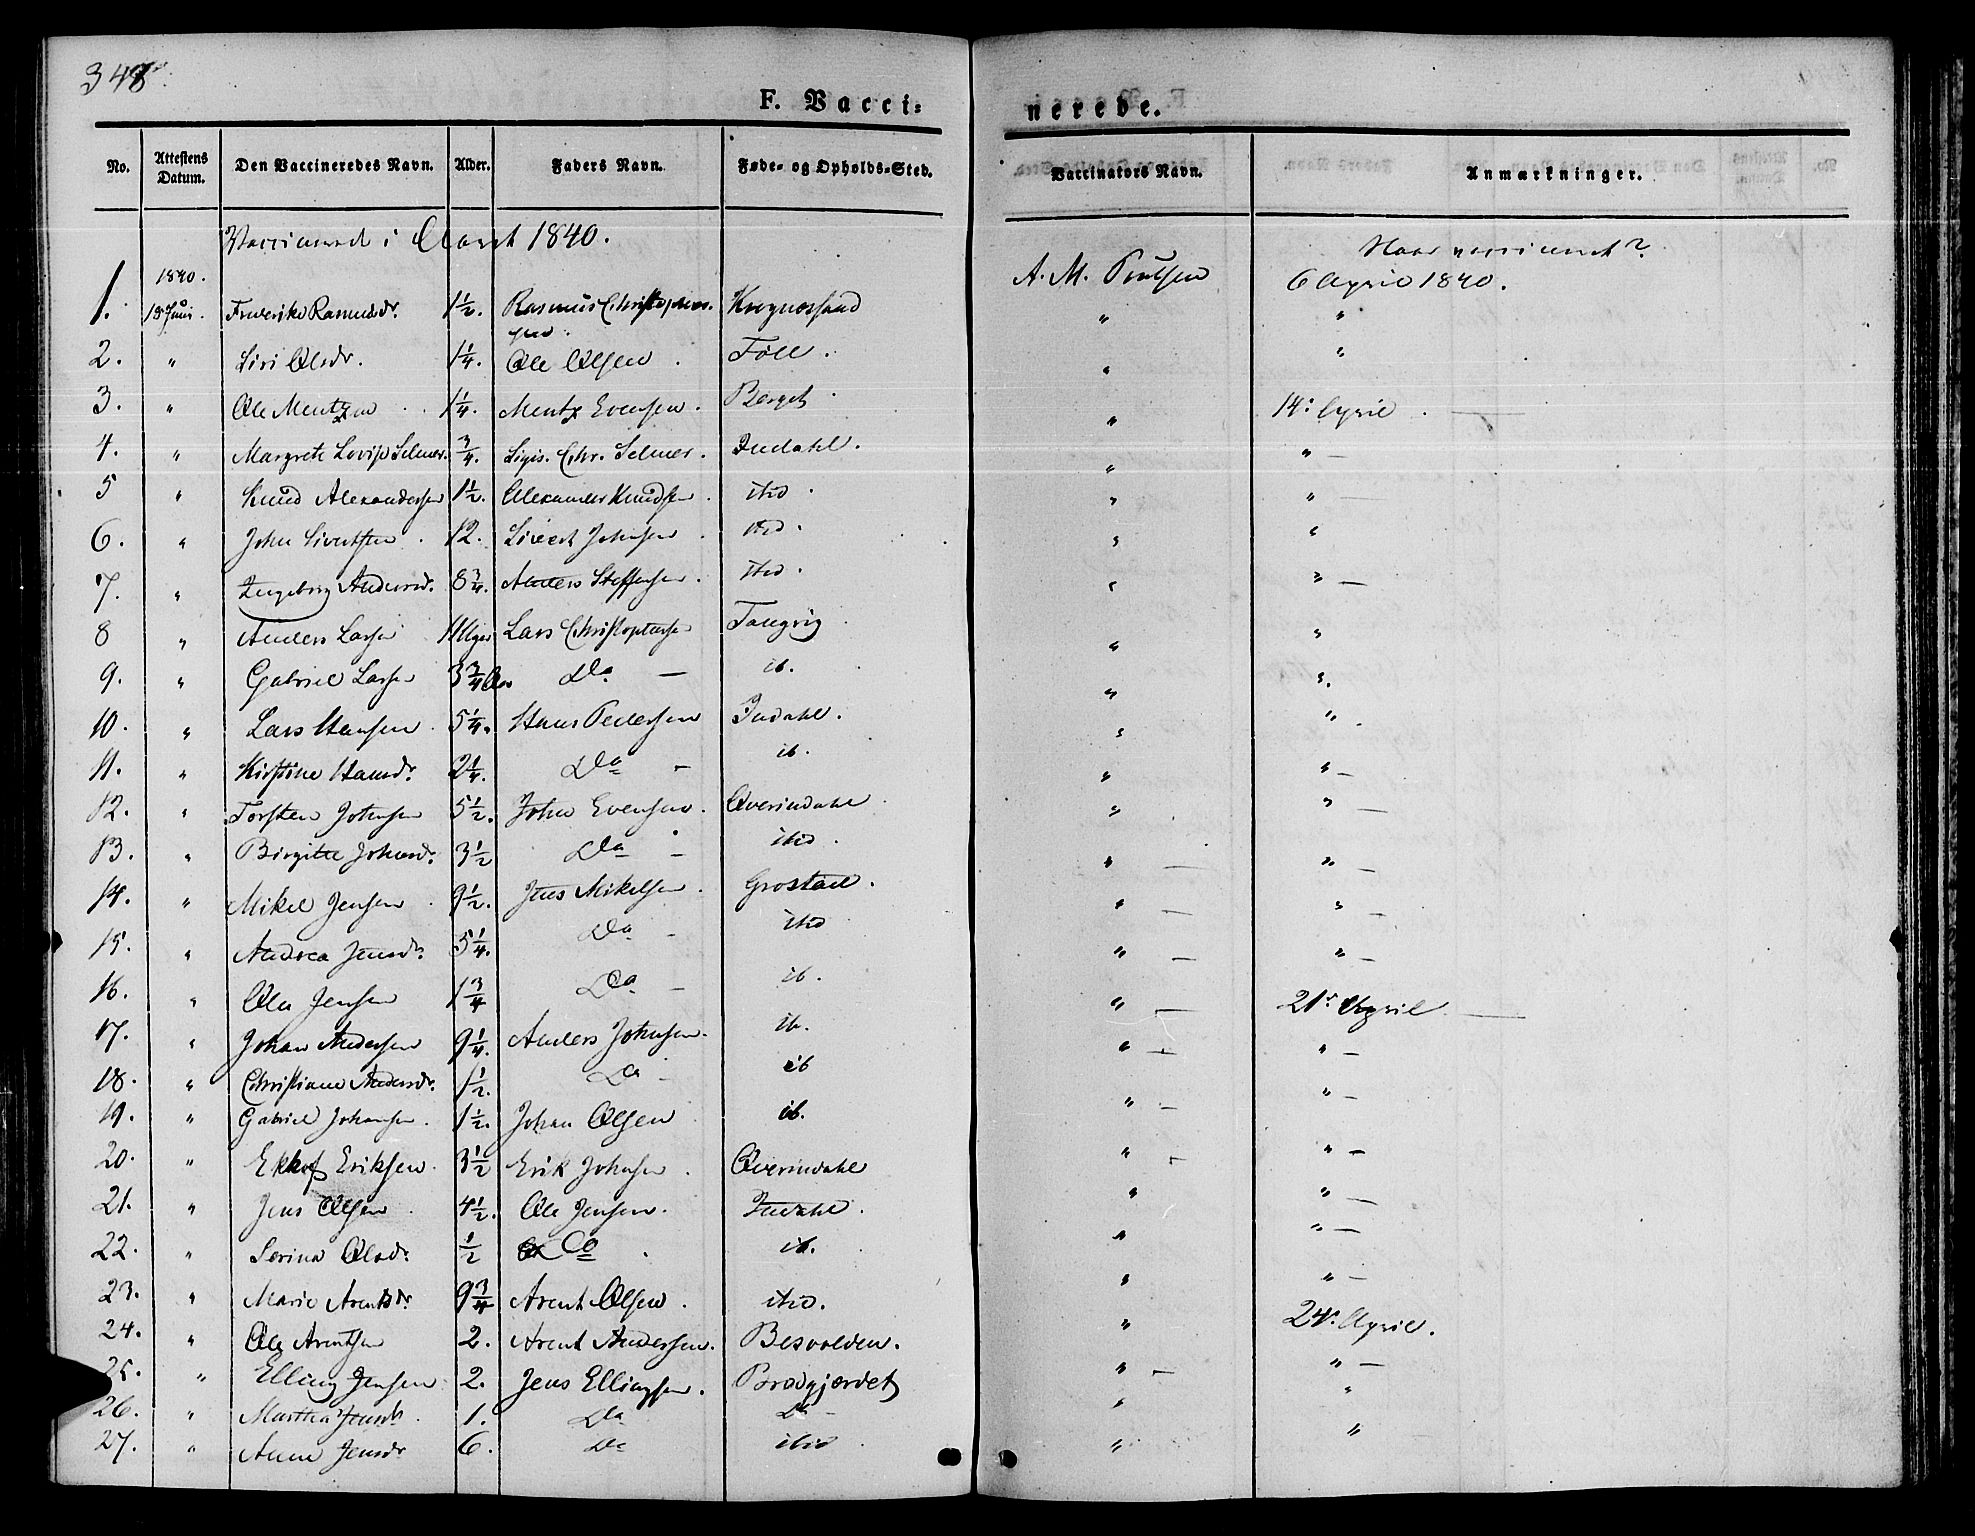 348
F. Vacci=
nerede.
No. Attestens Datum. Den Vaccineredes Navn. Alder. Faders Navn. Føde- og Opholds-Sted. Vaccinators Navn. Anmærkninger.
Vaccineret i Aaret 1840. Naar vaccineret?
1. 1840. 15 Juni. Frederike Rasmusdr. 1½. Rasmus Christophersen. A. M. Poulsen 6 April 1840.
2. " Siri Olsdr. 1¼. Ole Olsen. Föll. " "
3. " Ole Mentzen 1¼. Mentz Evensen. Berget. " 14. April
4. " Margrete Lovise Selmer. ¾. Sigis. Chr. Selmer. Indahl. " " —
5 " Knud Alexandersen 1½. Alexander Knudsen. ibid. " " —
6. " John Sivertsen. 12. Sivert Johnsen. ibid. " "
7. " Ingeborg Andersd. 8¾. Anders Steffensen. ibid. " " —
8 " Anders Larsen 11 Uger Lars Christophersen Tangvig. " "
9. " Gabriel Larsen 3¾ Aar Do — ib. " "
10. " Lars Hansen. 5¼. Hans Pedersen Indahl. " "
11. " Kirstine Hansdr. 2¼. Do – ib. " " —
12. " Torsten Johnsen 5½. John Evensen. Overindahl " " —
13. " Birgitte Johnsdr. 3½ Do – ibid. " — " —
14. " Mikel Jensen 9½. Jens Mikelsen. Grostad. " — " —
15. " Andrea Jensdr. 5¼. Do – ibid " — " —
16. " Ole Jensen 1¾ Do – ib. " — 21. April —
17. " Johan Andersen 9¼. Anders Johnsen. ib. " — " —
18. " Christiane Andersdr. 1½. Do – ib " — " —
19. " Gabriel Johansen. 1½. Johan Olsen ib. " — " —
20. " Erik Johnsen. 3½ Overindahl
21. " Jens Olsen 4½. Ole Jensen. Indahl. " " —
22. " Serina Olsdr. ½ Do ib. " " —
23. " Marie Arentsdr. 9¾ Arent Olsen. ibid. " " —
24. " Ole Arentsen 2. Arent Andersen. Besvolden. " 24. April.
25. " Elling Jensen 2. Jens Ellingsen. Bradgjerdet " — " —
26. " Martha Jensdr. 1. Do Do — " "
27. " Anne Jensdr 6. Do ibid " "